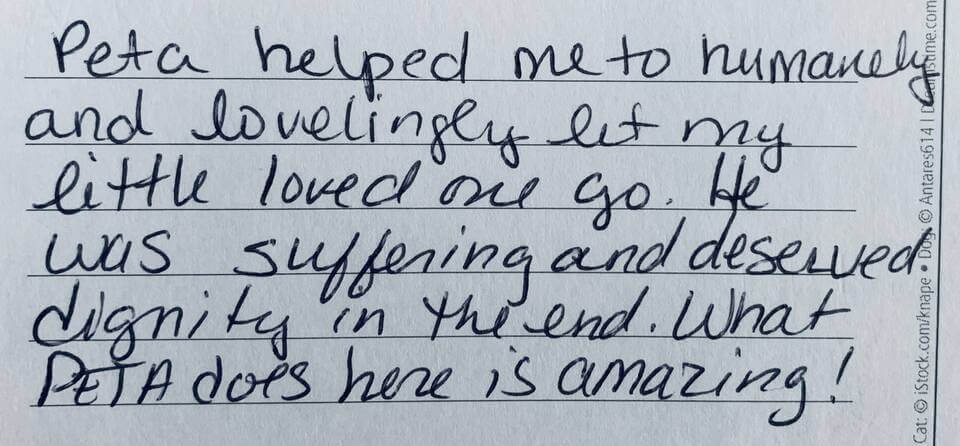 Peta helped me to humanely
and lovelingly let my
little loved one go. He
was suffering and deserved
dignity in the end. What
PETA does here is amazing!
Cat: © iStock.com/knape • Dog: © Antares614 | Dreamstime.com